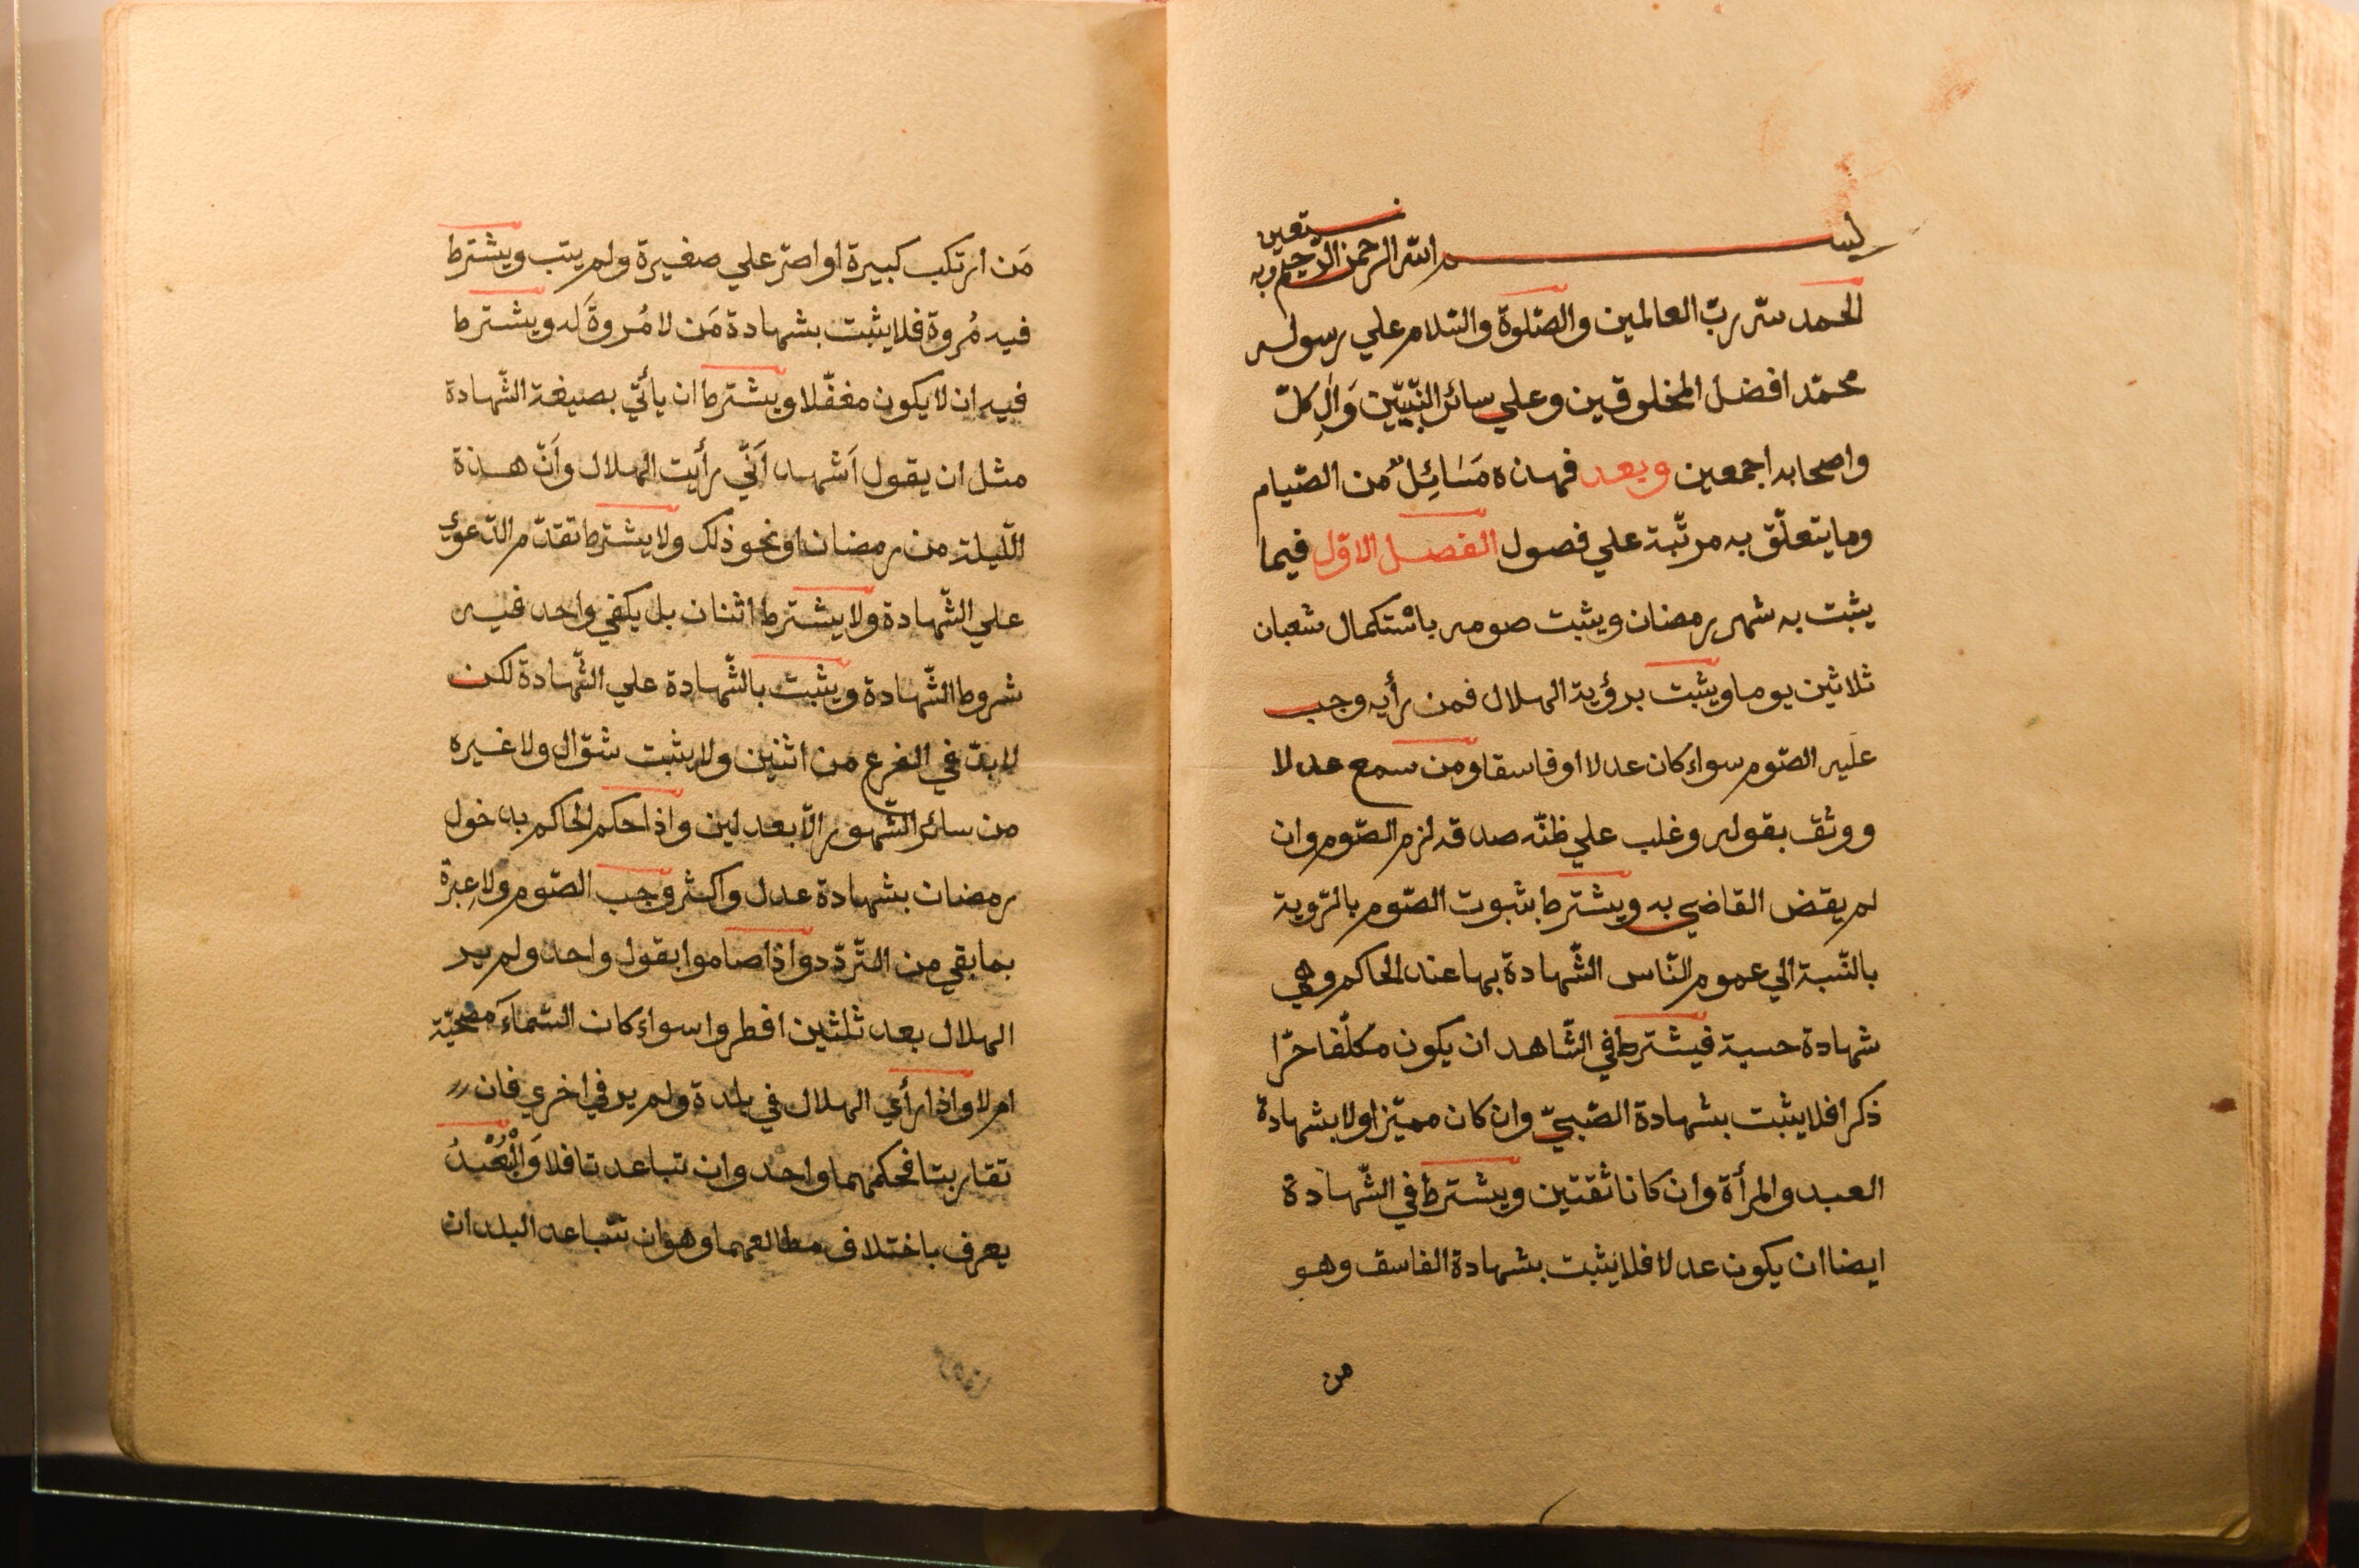 بسم الله الرحمن الرحيم وبه نستعين
الحمد لله ربّ العالمين والصّلوة والسّلام علي رسوله
محمّد افضل المخلوقين وعلي سائر النّبيّين وَاٰلِ كلّ
واصحابه اجمعين وبعد فهذه مَسَائِلُ من الصّيام
وما يتعلّق به مرتّبة علي فصول الفصل الاوّل فيما
يثبت به شهر رمضان ويثبت صومه باسْتكمال شعبان
ثلاثين يوما ويثبت برؤية الهلال فمن رأيه وجب
عليه الصّوم سواء كان عدلا او فاسقا ومن سمع عدلا
ووثق بقوله وغلب علي ظنّه صدقه لزم الصّوم وان
لم يقض القاضي به ويشترط بثبوت الصّوم بالرّوية
بالنّسبة الي عموم النّاس الشّهادة بها عند الحاكم وهي
شهادة حسبة فيشترط في الشّاهد ان يكون مكلّفا حرّا
ذكرا فلا يثبت بشهادة الصّبيّ وان كان مميّزا ولا بشهادة
العبد والمرأة وان كانا ثقتين ويشترط في الشّهادة
ايضا ان يكون عدلا فلا يثبت بشهادة الفاسق وهو
من
مَن ارتكب كبيرة او اصرّ علي صغيرة ولم يتب ويشترط
فيه مُروة فلا يثبت بشهادة مَن لا مُروةَ له ويشترط
فيه ان لا يكون مغفّلا ويشترط ان يأتيّ بصيغة الشّهادة
مثل ان يقول اَشهد اَنّي رأيت الهلال واَنّ هذة
اللّيلة من رمضان او نحو ذلك ولا يشترط تقدّم الدّعوي
علي الشّهادة ولا يشترط اثنان بل يكفي واحد فيه
شروط الشّهادة ويثبت بالشّهادة علي الشّهادة لكن
لا بدّ في الفرع من اثنين ولا يثبت شوّال ولا غيره
من سائر الشّهور الّا بعدلين واذا حكم الحاكم بدخول
رمضان بشهادة عدل واكثر وجب الصّوم ولا عِبرة
بما بقي من التّردّد واذا صاموا بقول واحد ولم ير
الهلال بعد ثلثين افطروا سواء كان السّماءَ مصحيّة
ام لا واذا رأي الهلال في بلدة ولم ير في اخري فان
تقاربتا فحكمهما واحد وان تباعدتا فلا وَالْبُعْدُ
يعرف باختلاف مطالعهما وهو ان تتباعد البلدان